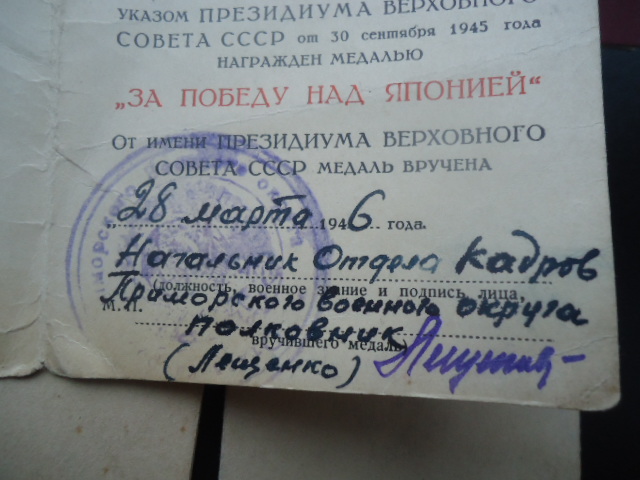 УКАЗОМ ПРЕЗИДИУМА ВЕРХОВНОГО
СОВЕТА СССР от 30 сентября 1945 года
НАГРАЖДЕН МЕДАЛЬЮ
„ЗА ПОБЕДУ НАД ЯПОНИЕЙ“
От имени ПРЕЗИДИУМА ВЕРХОВНОГО
СОВЕТА СССР МЕДАЛЬ ВРУЧЕНА
„28 марта 1946 года.
Начальник Отдела Кадров
(должность, военное звание и подпись лица,
Приморского военного округа
М. П.
Полковник
вручившего медаль)
(Лещенко)